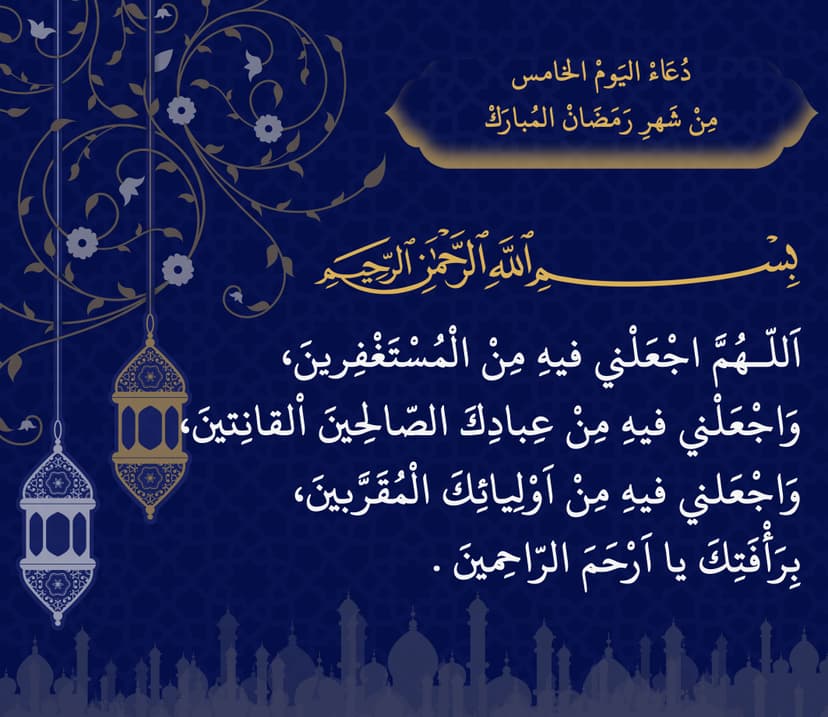 دُعَاءْ اليَومْ الخامس
مِنْ شَهرِ رَمَضَانْ المُبارَكْ
بِسْمِ ٱللَّهِ ٱلرَّحْمَٰنِ ٱلرَّحِيمِ
اَللّـهُمَّ اجْعَلْني فيهِ مِنْ الْمُسْتَغْفِرينَ،
وَاجْعَلْني فيهِ مِنْ عِبادِكَ الصّالِحينَ اْلقانِتينَ،
وَاجْعَلني فيهِ مِنْ اَوْلِيائِكَ الْمُقَرَّبينَ،
بِرَأْفَتِكَ يا اَرْحَمَ الرّاحِمينَ .